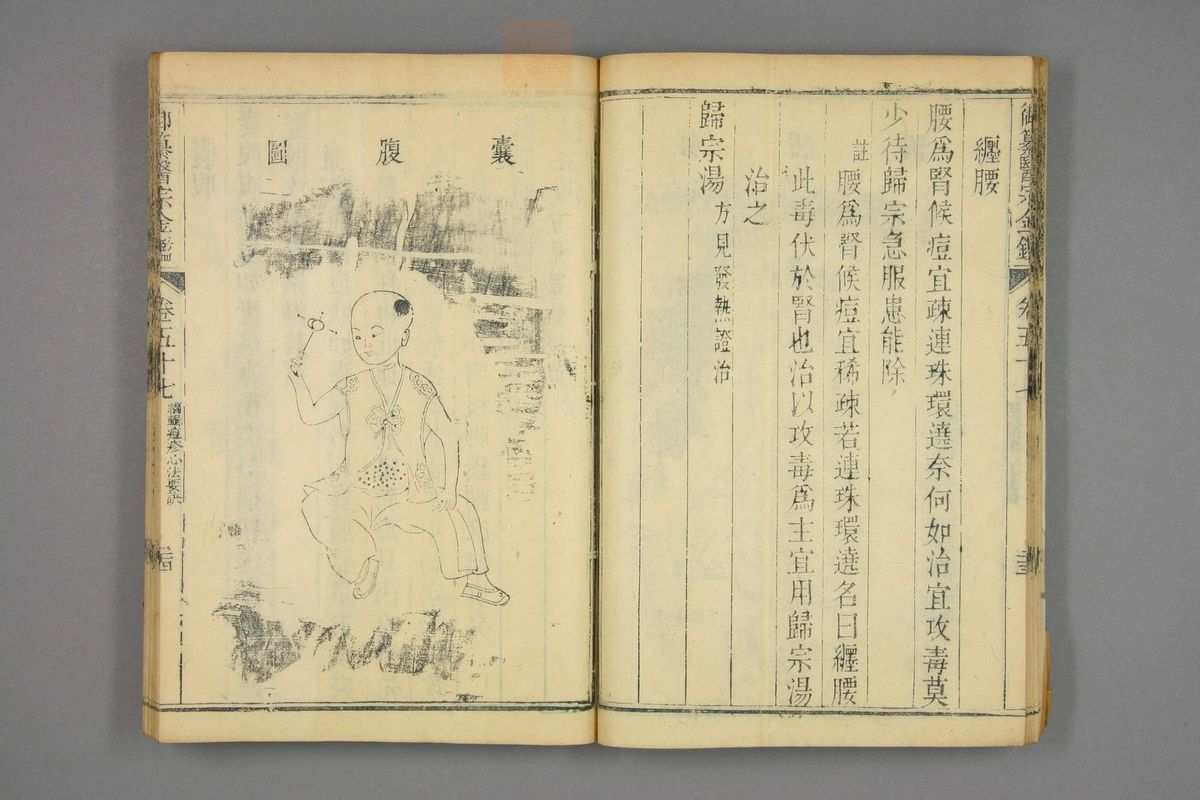 纏腰
腰爲腎候痘宜疎連珠環遶奈何如治宜攻毒莫
少待歸宗急服患能除
註
腰爲腎候痘宜稀疎若連珠環遶名曰纏腰
此毒伏於腎也治以攻毒爲主宜用歸宗湯
治之
歸宗湯 方見發熱證治
囊腹圖
御纂醫宗金鑑
卷五十七
編輯痘疹心法要訣